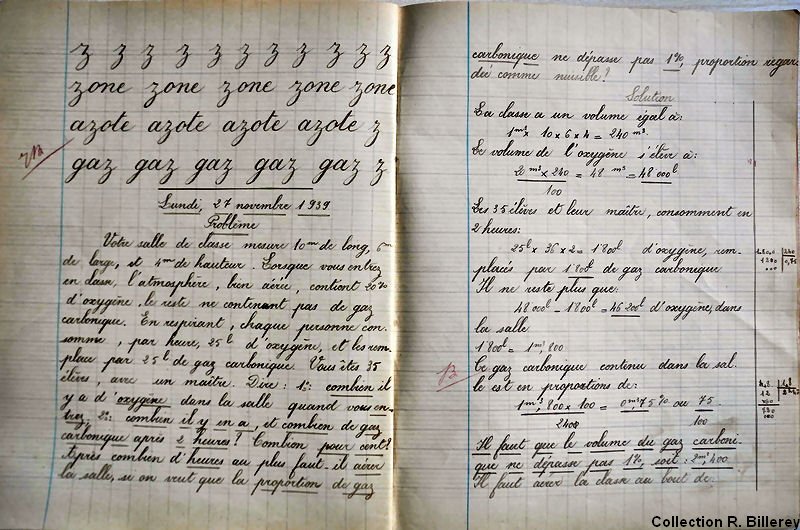 z z z z z z z z z z
zone zone zone zone zone
azote azote azote azote z
gaz gaz gaz gaz gaz z
Lundi, 27 novembre 1939
Problème
Votre salle de classe mesure 10m de long, 6m
de large, et 4m de hauteur. Lorsque vous entrez
en classe, l'atmosphère, bien aérée, contient 20%
d'oxygène, le reste ne contenant pas de gaz
carbonique. En respirant, chaque personne con-
somme, par heure, 25l d'oxygène, et les rem-
place par 25l de gaz carbonique. Vous êtes 35
élèves, avec un maître. Dire: 1º: combien il
y a d'oxygène dans la salle quand vous en-
trez, 2º: combien il y en a, et combien de gaz
carbonique après 2 heures? Combien pour cent?
Après combien d'heures au plus faut-il aérer
la salle, si on veut que la proportion de gaz
carbonique ne dépasse pas 1%, proportion regar-
dée comme nuisible?
Solution
La classe a un volume égal à:
1m3 x 10 x 6 x 4 = 240 m3.
Le volume de l'oxygène s'élève à:
2 m3 x 240 = 48 m3 = 48 000l
100
Les 35 élèves et leur maître, consomment en
2 heures:
25l x 36 x 2 = 1'800l d'oxygène, rem-
placés par 1 800l de gaz carbonique
Il ne reste plus que:
48 000l - 1800l = 46 200l d'oxygène, dans
la salle.
1'800l = 1m3,800
Ce gaz carbonique contenu dans la sal-
le est en proportions de:
1m3,800 x 100 = 0m3,75% ou 75.
2400 100
Il faut que le volume du gaz carboni-
que ne dépasse pas 1%, soit: 2m3,400
Il faut aérer la classe au bout de:
Collection R. Billerey